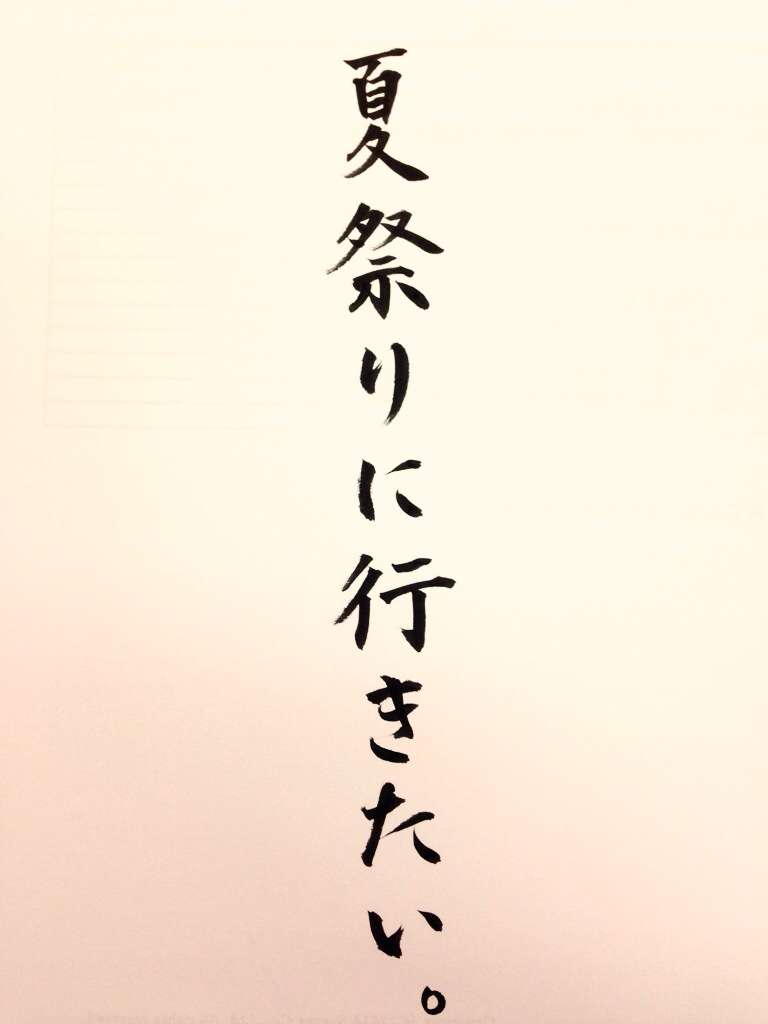 夏祭りに行きたい。